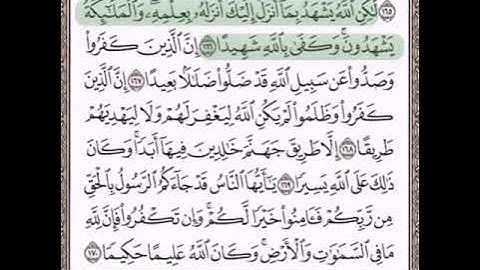 ١٦٥ لَّٰكِنِ ٱللَّهُ يَشْهَدُ بِمَآ أَنزَلَ إِلَيْكَ أَنزَلَهُۥ بِعِلْمِهِۦ وَٱلْمَلَٰٓئِكَةُ
يَشْهَدُونَ وَكَفَىٰ بِٱللَّهِ شَهِيدًا ١٦٦ إِنَّ ٱلَّذِينَ كَفَرُوا۟
وَصَدُّوا۟ عَن سَبِيلِ ٱللَّهِ قَدْ ضَلُّوا۟ ضَلَٰلًۢا بَعِيدًا ١٦٧ إِنَّ ٱلَّذِينَ
كَفَرُوا۟ وَظَلَمُوا۟ لَمْ يَكُنِ ٱللَّهُ لِيَغْفِرَ لَهُمْ وَلَا لِيَهْدِيَهُمْ
طَرِيقًا ١٦٨ إِلَّا طَرِيقَ جَهَنَّمَ خَٰلِدِينَ فِيهَآ أَبَدًا وَكَانَ
ذَٰلِكَ عَلَى ٱللَّهِ يَسِيرًا ١٦٩ يَٰٓأَيُّهَا ٱلنَّاسُ قَدْ جَآءَكُمُ ٱلرَّسُولُ بِٱلْحَقِّ
مِن رَّبِّكُمْ فَـَٔامِنُوا۟ خَيْرًا لَّكُمْ وَإِن تَكْفُرُوا۟ فَإِنَّ لِلَّهِ
مَا فِى ٱلسَّمَٰوَٰتِ وَٱلْأَرْضِ وَكَانَ ٱللَّهُ عَلِيمًا حَكِيمًا ١٧٠